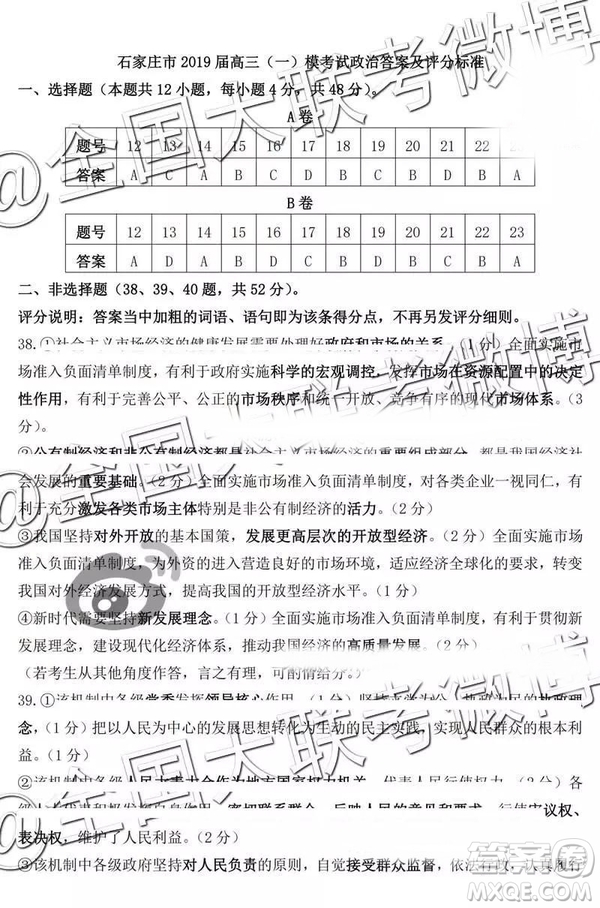 石家庄市 2019 届高三（一）模考试政治答案及评分标准
一、选择题（本题共 12 小题，每小题 4 分，共 48 分）。
A 卷
题号 12 13 14 15 16 17 18 19 20 21 22
答案 A C A D D A B D C B C A
B 卷
题号 12 13 14 15 16 17 18 19 20 21 22 23
答案 A D D A C A D B D B C A
二、非选择题（38、39、40 题，共 52 分）。
评分说明：答案当中加粗的词语、语句即为该条得分点，不再另发评分细则。
38.①社会主义市场经济的健康发展需要处理好政府和市场的关系。（1 分）全面实施市
场准入负面清单制度，有利于政府实施科学的宏观调控，发挥市场在资源配置中的决定
性作用，有利于完善公平、公正的市场秩序和统一开放、竞争有序的现代市场体系。（3
分）。
②公有制经济和非公有制经济都是社会主义市场经济的重要组成部分，都是我国经济社
会发展的重要基础。（2 分）全面实施市场准入负面清单制度，对各类企业一视同仁，有
利于充分激发各类市场主体特别是非公有制经济的活力。（2 分）
③我国坚持对外开放的基本国策，发展更高层次的开放型经济。（2 分）全面实施市场
准入负面清单制度，有利于营造良好的市场环境，适应经济全球化的要求，转变
我国对外经济发展方式，提高我国的开放型经济水平。（1 分）
④新时代需要坚持新发展理念。（1 分）全面实施市场准入负面清单制度，有利于贯彻新
发展理念，建设现代化经济体系，推动我国经济的高质量发展。（2 分）
（若考生从其他角度作答，言之有理，可酌情给分）。
39.①该机制中各级党委发挥领导核心作用，（1 分）坚持以人民为中心的执政理
念，（1 分）把以人民为中心的发展思想转化为生动的民主实践，实现人民群众的根本利
益。（1 分）
②该机制中各级人民代表大会作为地方国家权力机关，代表人民行使权力。（2 分）各
级人大代表发挥自身作用，密切联系群众，反映人民的意见和要求，行使审议权、
表决权，维护了人民利益。（2 分）
③该机制中各级政府坚持对人民负责的原则，自觉接受群众监督，依法行政，认真履行
@全国大联考微博
@全国大联考微博
答案圈
MXQE.COM